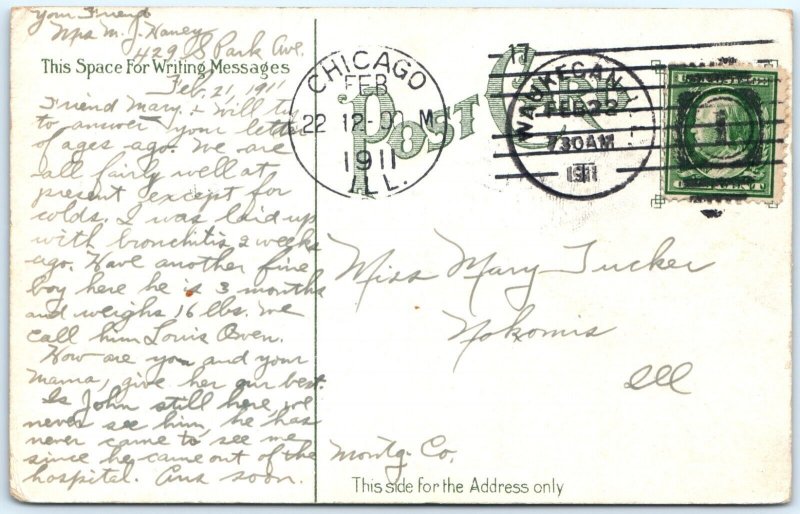 Your Friend
Mrs M. J. Haney
429 S Park Ave.
This Space For Writing Messages
Feb. 21, 1911
Friend Mary, + Will try
to answer your letter
of ages ago. We are
all fairly well at
present except for
colds. I was laid up
with bronchitis 2 weeks
ago. Have another fine
boy here he is 3 months
and weighs 16 lbs. We
call him Louis Owen.
How are you and your
Mama, give her our best.
Is John still here, we
never see him, he has
never came to see me
since he came out of the
hospital. Ans soon.
POST CARD
CHICAGO
FEB
22 12-0 M
1911
ILL.
17
WAUKEGAN, ILL.
FEB 22
730AM
1911
1
Miss Mary Tucker
Nokomis
Ill
Montg. Co.
This side for the Address only